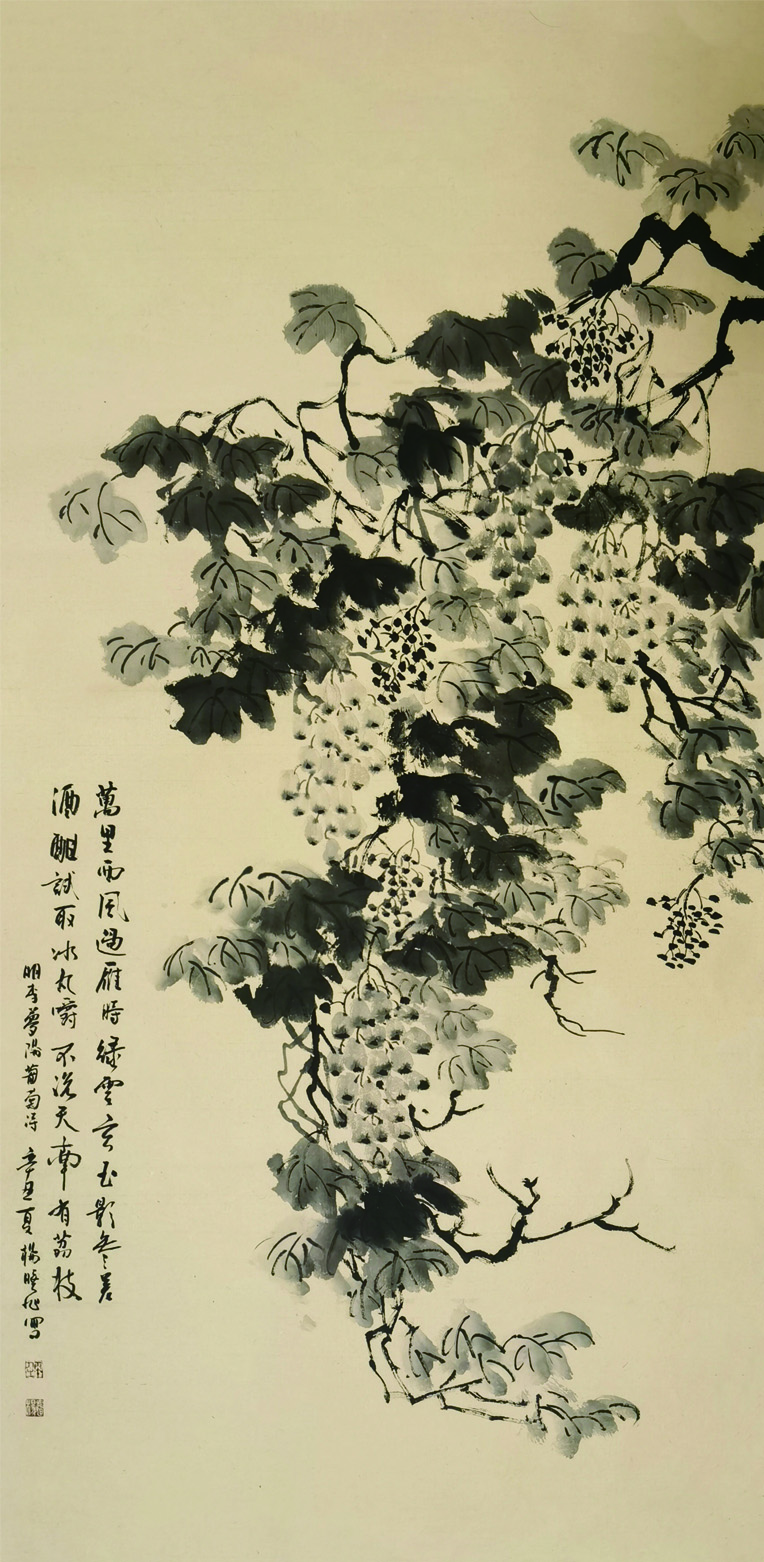 萬里西風過雁時綠雲玄玉影參差
酒酣試取冰丸嚼不說天南有荔枝
明李夢陽葡萄詩 辛丑夏 寫